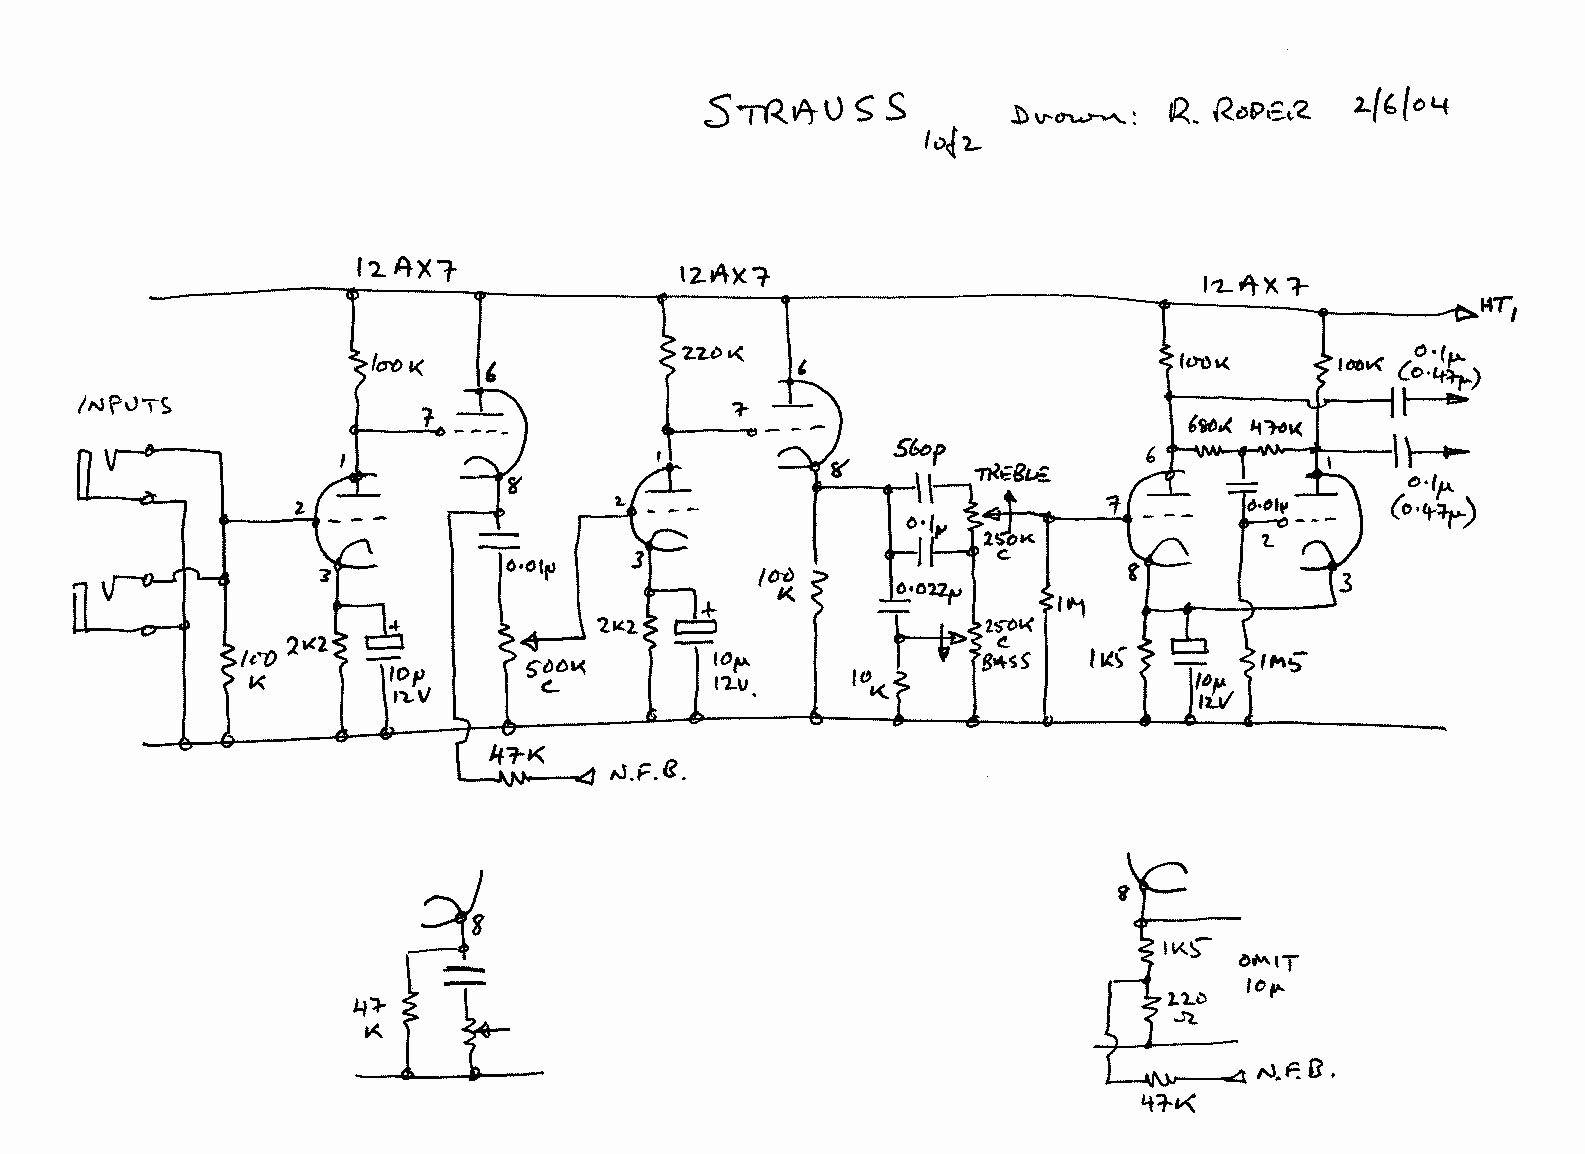 STRAUSS
1 of 2
Drawn: R. RODER 2/6/04
12AX7
12AX7
12AX7
HT1
INPUTS
100K
6
7
1
8
2
3
100
K
2K2
+
10µ
12V
0.01µ
500K
C
47K
N.F.B.
220K
6
7
1
8
2
3
2K2
+
10µ
12V.
100
K
560p
TREBLE
0.1µ
250K
C
0.022µ
250K
C
BASS
10
K
1M
100K
100K
0.1µ
(0.47µ)
680K
470K
6
1
7
0.01µ
0.1µ
(0.47µ)
2
8
3
1K5
10µ
12V
1M5
8
47
K
8
1K5
OMIT
10µ
220
Ω
N.F.B.
47K